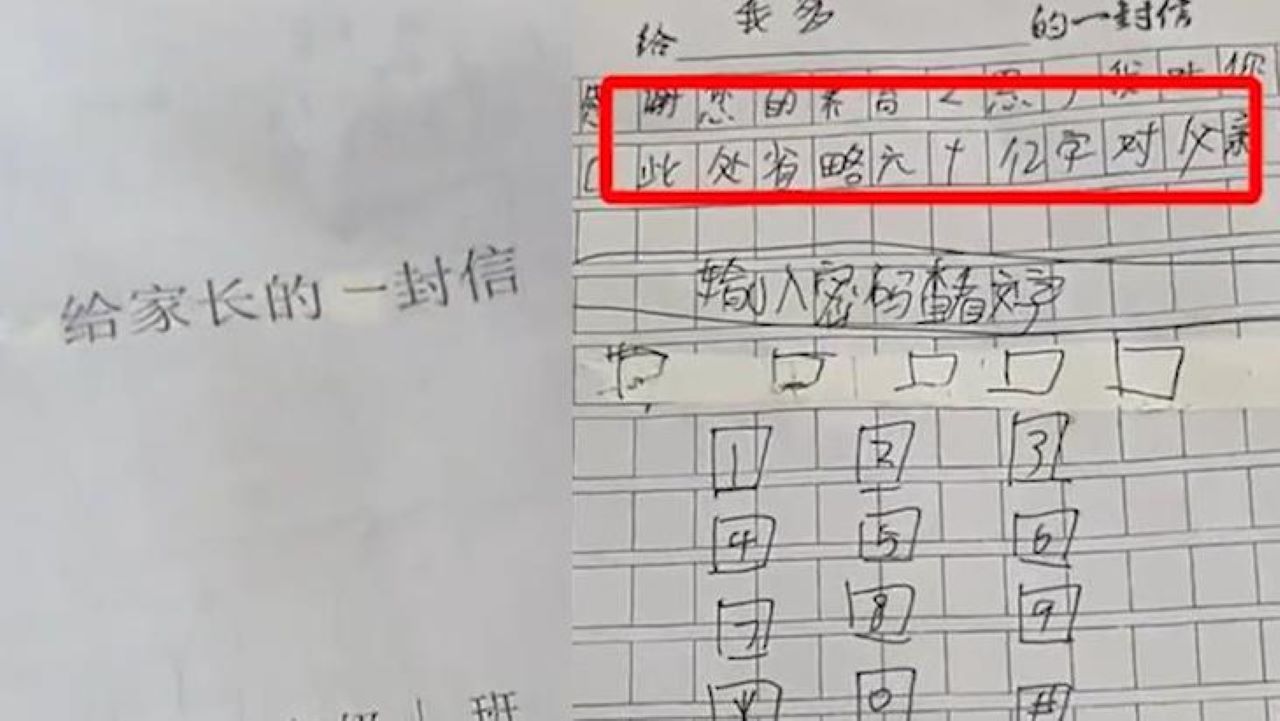 给家长的一封信
班
给 我 爹 的一封信
感谢您的养育之恩，我对你
（此处省略六十亿字对父亲
输入密码查看文字
1 2 3
4 5 6
7 8 9
* 0 #